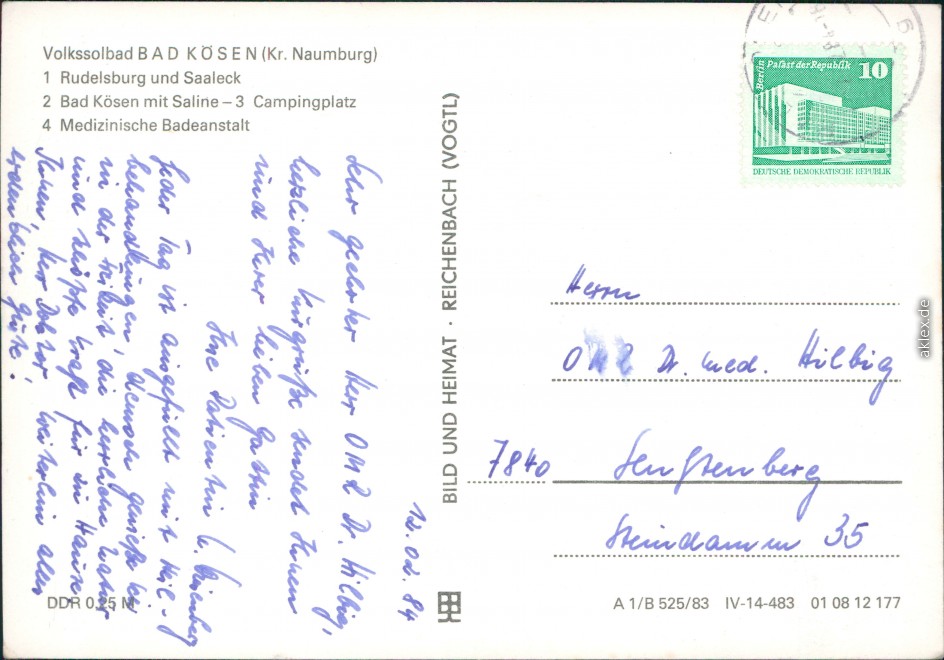 Volkssolbad BAD KÖSEN (Kr. Naumburg)
1 Rudelsburg und Saaleck
2 Bad Kösen mit Saline – 3 Campingplatz
4 Medizinische Badeanstalt
12.02.84
Sehr geehrter Herr OMR Dr. Hilbig,
herzliche Kurgrüße sendet Ihnen
und Ihrer lieben Gattin
Ihre Patientin
Jeder Tag ist ausgefüllt mit Heil-
behandlungen, dennoch genieße ich
in der Freizeit die herrliche Natur
und schöpfe Kraft für zu Hause.
Ihnen, Herr Doktor, weiterhin alles
erdenklich Gute!
BILD UND HEIMAT · REICHENBACH (VOGTL)
Berlin Palast der Republik 10
DEUTSCHE DEMOKRATISCHE REPUBLIK
Herrn
OMR Dr. med. Hilbig
7840 Senftenberg
Steindamm 35
DDR 0,25 M
A 1/B 525/83 IV-14-483 01 08 12 177
aklex.de